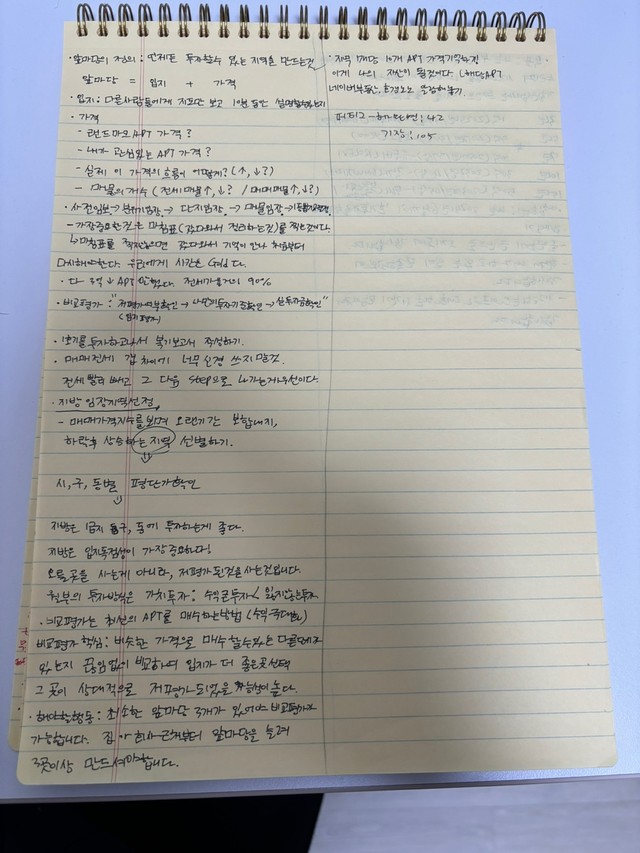 · 앞마당의 정의 : 언제든 투자할수 있는 지역을 만드는것
앞마당 = 입지 + 가격
· 입지 : 다른사람들에게 지도만 보고 10분 동안 설명할수있는지
· 가격
- 랜드마크 APT 가격?
- 내가 관심있는 APT 가격?
- 실제 이 가격의 흐름이 어떻게? (↑, ↓?)
- 매물의 개수 (전세매물↑, ↓? / 매매매물↑, ↓?)
· 사전임보 → 분위기임장 → 단지임장 → 매물임장 →
- 가장중요한것은 마침표(갔다와서 정리하는것)를 찍는것이다.
↳ 마침표를 찍지않으면 갔다와서 기억이 안나 처음부터
다시해야한다. 우리에게 시간은 Gold다.
· 다 3억↓ APT 전세가율 거의 90%
· 비교평가 : "저평가여부확인 → 나만의투자기준확인 → 실투자금확인"
(입지평가)
· 1호기를 투자하고나서 복기보고서 작성하기.
· 매매전세 갭 차이에 너무 신경 쓰지말것.
전세 빨리 빼고 그 다음 step으로 나가는게 우선이다.
· 지방임장지역선정
- 매매가격지수를보며 오랜기간 보합내지,
하락후 상승하는지역 선별하기.
시, 구, 동별 평단가확인
지방은 1급지 구, 동에 투자하는게 좋다.
지방은 입지독점성이 가장중요하다!
오를 곳을 사는게 아니라, 저평가된것을사는것입니다.
투자방식은 가치투자 : 수익률투자 < 잃지않는투자
· 비교평가는 최선의 APT를 매수하는방법 (수익극대화)
비교평가 핵심 : 비슷한 가격으로 매수할수있는 다른단지가
있는지 끊임없이 비교하여 입지가 더 좋은곳선택
그 곳이 상대적으로 저평가되었을 가능성이 높다.
· 해야할행동 : 최소한 앞마당 3개가 있어야 비교평가가
가능합니다. 집 근처부터 앞마당을 늘려
3곳이상 만드셔야합니다.
· 지역 1개당 10개 APT 가격기억하면
이게 나의 자산이 될것이다. (해당APT
네이버부동산, 호갱노노 알람해놓기.
42
105